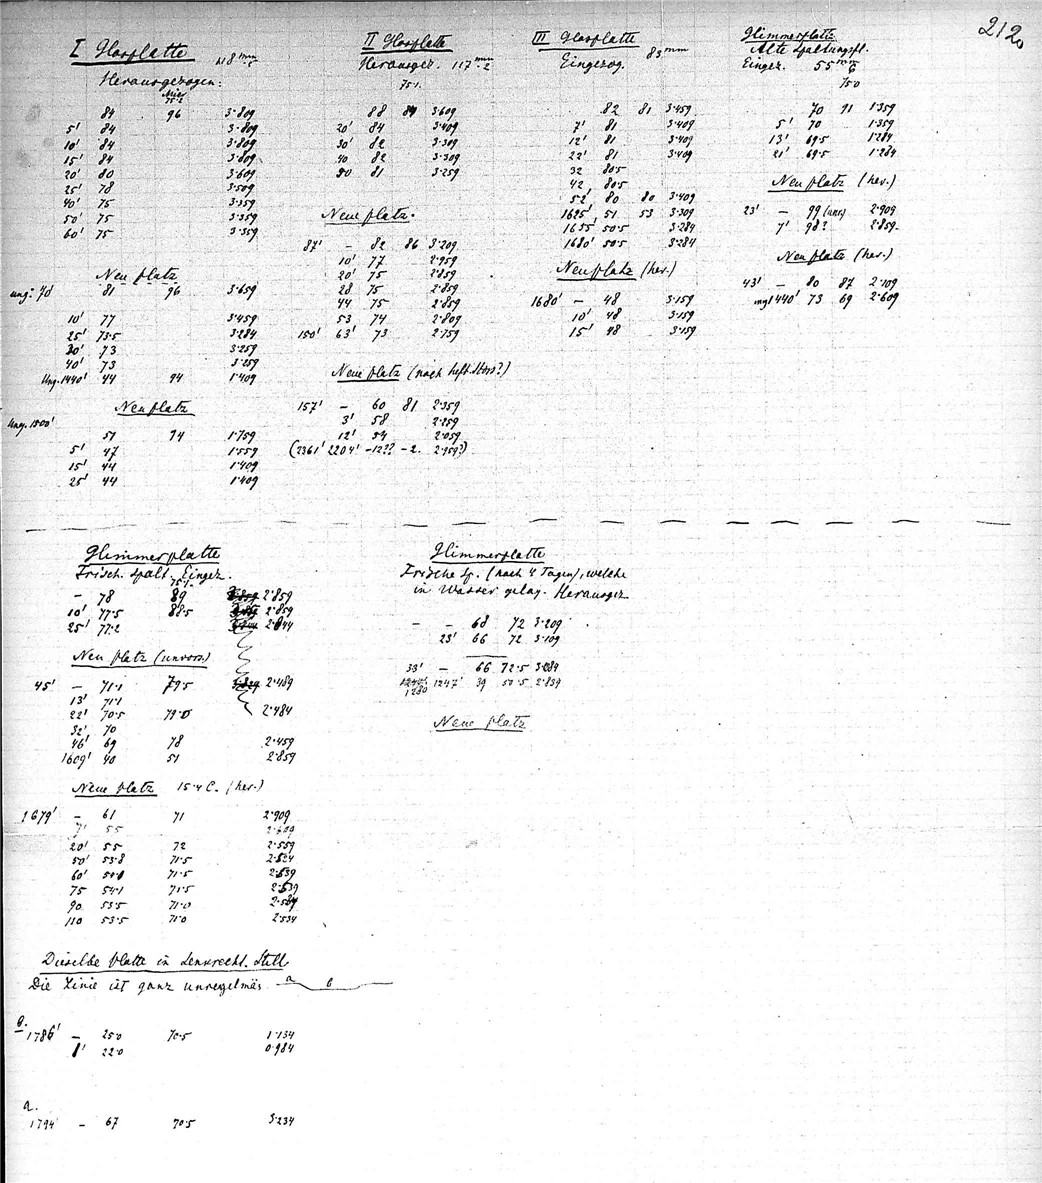 212
I Glasplatte 118 mm 5
Herausgezogen:
84 96 3·809
5' 84 3·809
10' 84 3·809
15' 84 3·809
20' 80 3·609
25' 78 3·509
40' 75 3·359
50' 75 3·359
60' 75 3·359
Neu platz
ung: 70' 81 96 3·659
10' 77 3·459
25' 73·5 3·284
30' 73 3·259
40' 73 3·259
Ung. 1440' 44 94 1·409
Neu platz
Ung. 1500'
51 94 1·759
5' 47 1·559
15' 44 1·409
25' 44 1·409
II Glasplatte
Herausgez. 117 mm 2
751.
88 84 3·609
20' 84 3·409
30' 82 3·309
40 82 3·309
50 81 3·259
Neue platz.
87' – 82 86 3·209
10' 77 2·959
20' 75 2·859
28 75 2·859
44 75 2·859
53 74 2·809
150' 63' 73 2·759
Neue platz (nach heft. Stoss?)
157' – 60 81 2·359
3' 58 2·259
12' 54 2·059
(2361' 2204' –12?? –2. 2·959?)
III Glasplatte
Eingezog. 83 mm
82 81 3·459
7' 81 3·409
12' 81 3·409
22' 81 3·409
32 80·5
42 80·5
52' 80 80 3·409
1625' 51 53 3·309
1655 50·5 3·284
1680' 50·5 3·284
Neu platz (her.)
1680' – 48 3·159
10' 48 3·159
15' 48 3·159
Glimmerplatte
Alte Spaltungsfl.
Eingez. 55 mm 6
750
70 91 1·359
5' 70 1·359
13' 69·5 1·284
21' 69·5 1·284
Neu platz (her.)
23' – 99 (unc) 2·909
7' 98? 2·859
Neu platz (her.)
43' – 80 87 2·109
1440' 73 69 2·609
Glimmerplatte
Frisch. Spalt. Eingez.
751.
– 78 89 2·859
10' 77·5 88·5 2·859
25' 77·2 2·844
Neu platz (unvors.)
45' – 71·1 79·5 2·489
13' 71·1
22' 70·5 79·0 2·484
32' 70
46' 69 78 2·459
1609' 40 51 2·859
Neue platz 15·4 C. (her.)
1679' – 61 71 2·909
7' 55 2·609
20' 55 72 2·559
50' 53·8 71·5 2·524
60' 54·0 71·5 2·539
75 54·1 71·5 2·539
90 53·5 71·0 2·534
110 53·5 71·0 2·534
Dieselbe Platte in senkrecht. Stell.
Die Linie ist ganz unregelmäs. a b
b.
1786' – 25·0 70·5 1·134
1' 22·0 0·984
a.
1794' – 67 70·5 3·234
Glimmerplatte
Frische Sp. (nach 4 Tagen), welche
in Wasser gelag. Herausgez.
– – 68 72 3·209
23' 66 72 3·109
33' – 66 72·5 3·089
1280 1247' 39 50·5 2·839
Neue platz